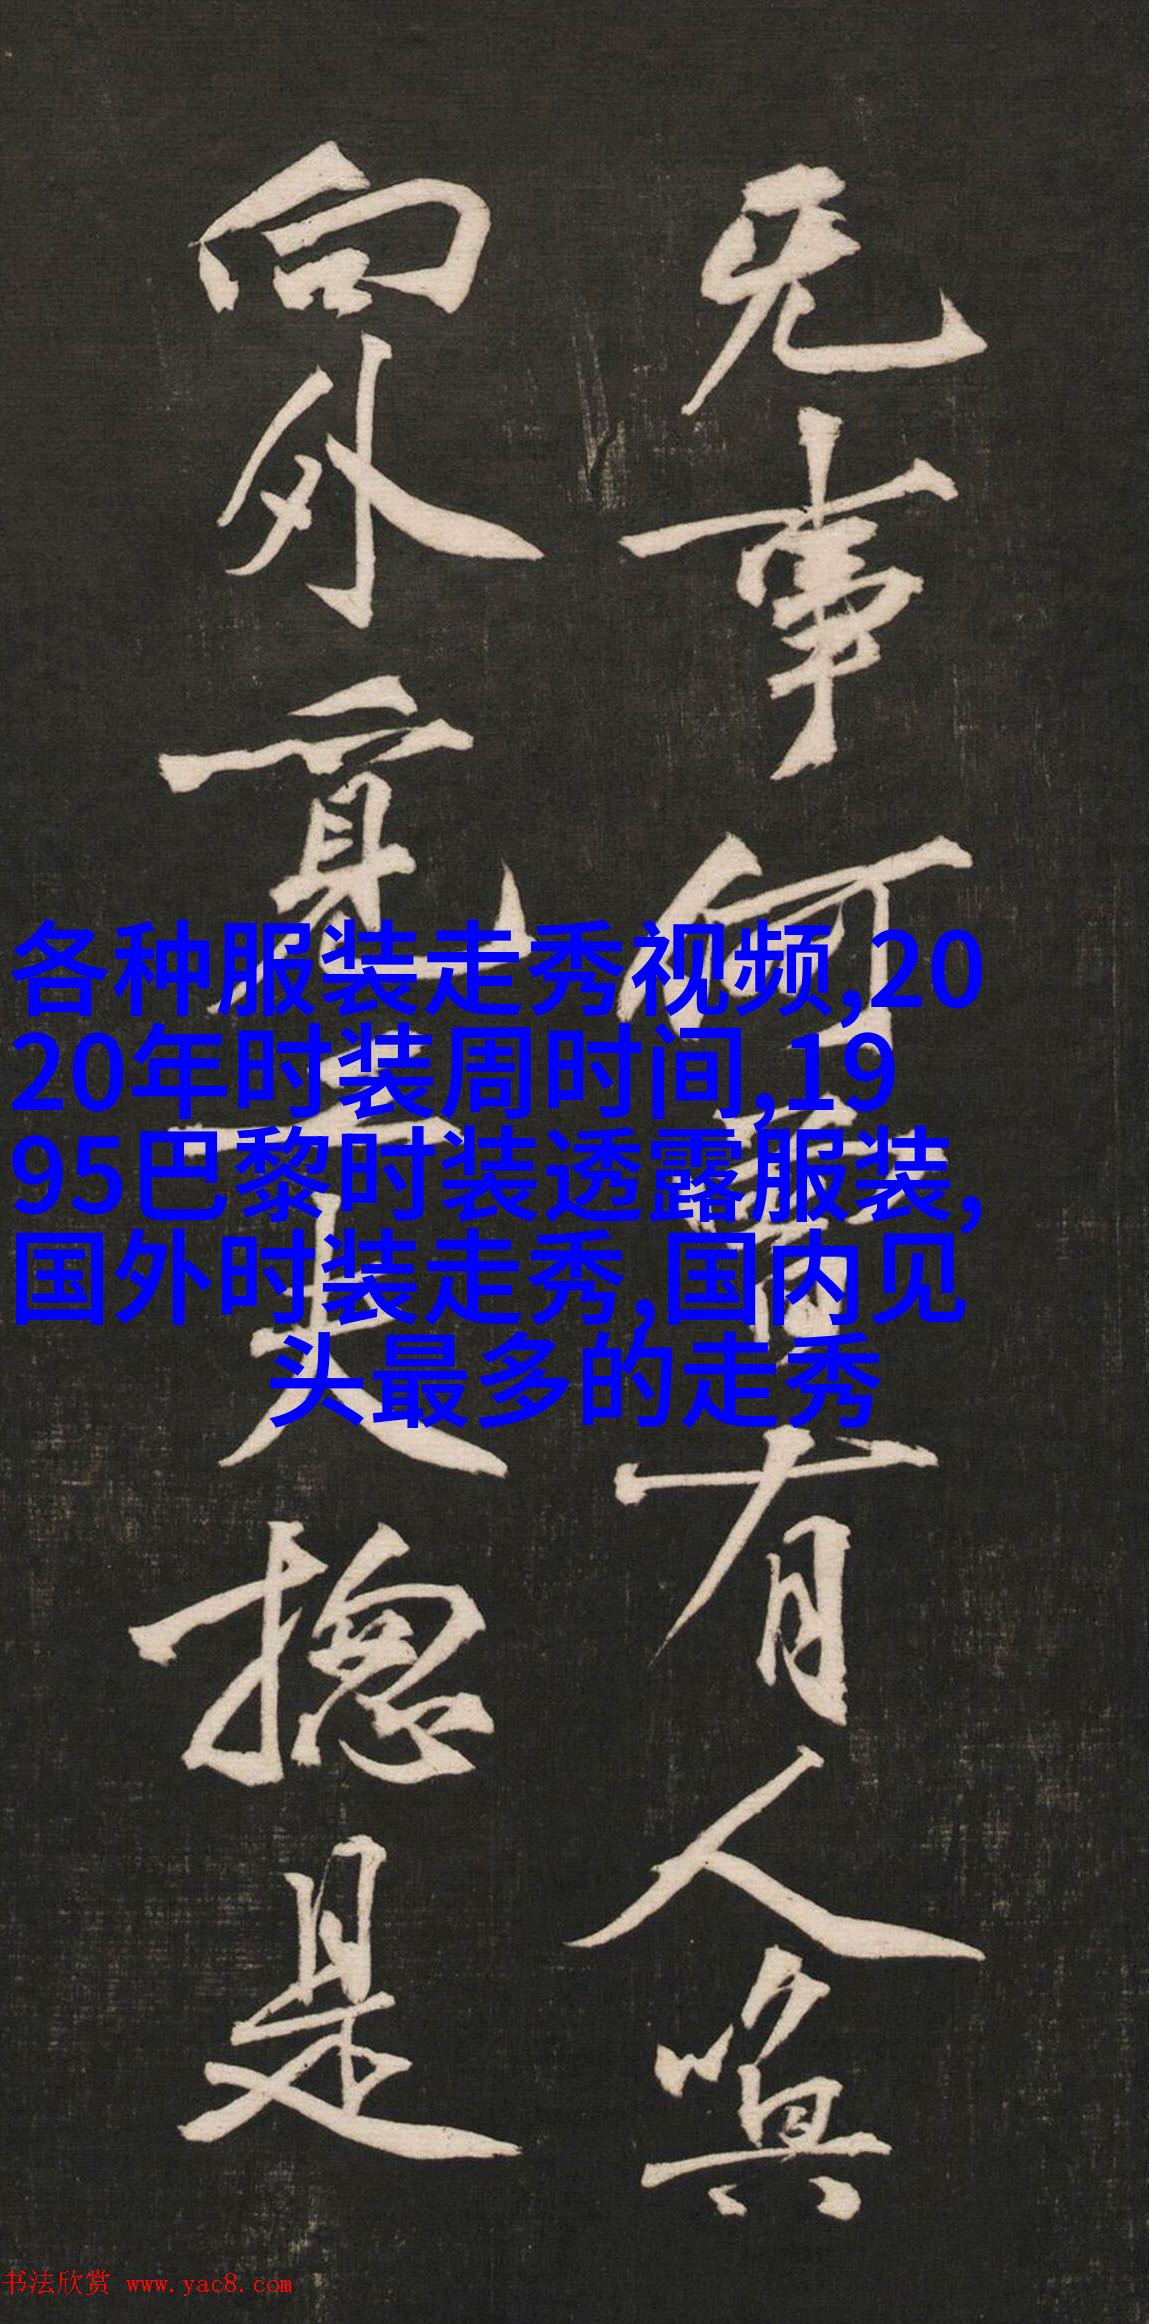 无事何有人喚
向外覓工夫揔是
各种服装走秀视频,20
20年时装周时间,19
95巴黎时装透露服装,
国外时装走秀,国内见
头最多的走秀
书法欣赏 www.yac8.com